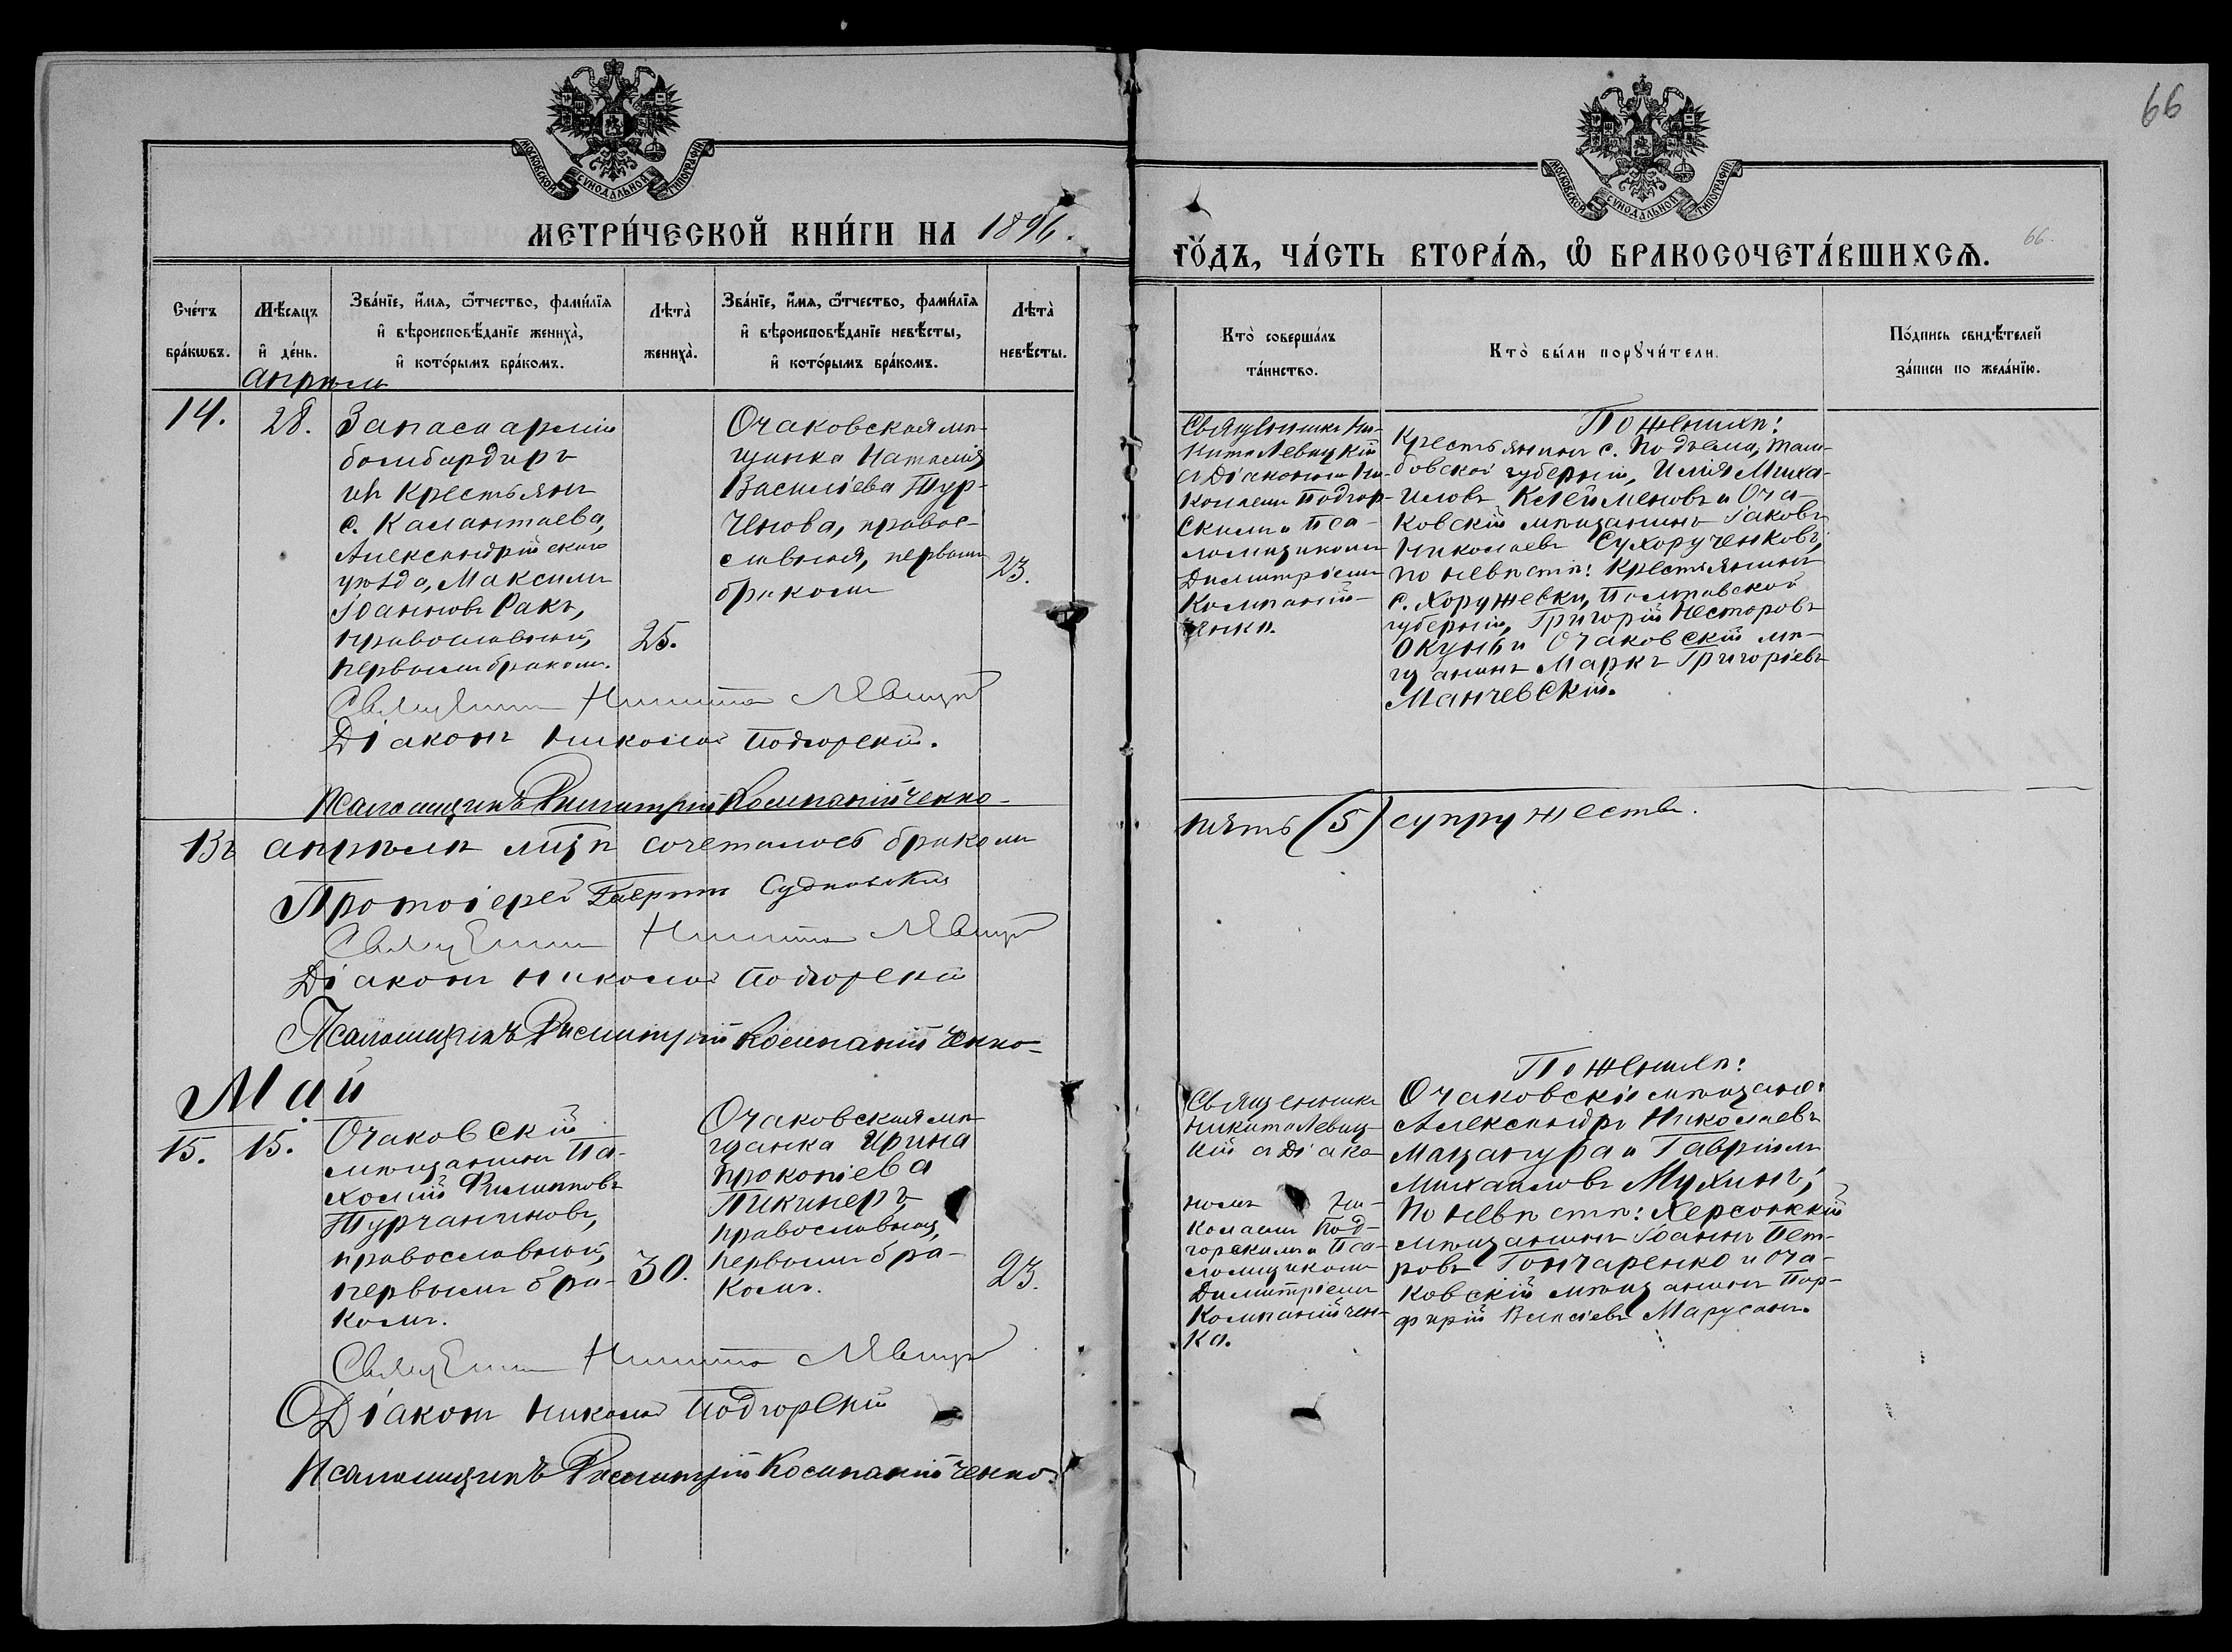 66
МОСКОВСКОЙ СѴНОДАЛЬНОЙ ТИПОГРАФІИ
МОСКОВСКОЙ СѴНОДАЛЬНОЙ ТИПОГРАФІИ
МЕТРИ́ЧЕСКОЙ КНИ́ГИ НА 1896.
ГО́ДЪ, ЧА́СТЬ ВТОРА́Ѧ, Ѡ҆ БРАКОСОЧЕТА́ВШИХСѦ.
66.
Сче́тъ бра́кѡвъ.
Мѣ́сяцъ и҆ де́нь.
Зва́нїе, и҆́мѧ, ѻ҆́тчество, фами́лїѧ
и҆ вѣроисповѣ́данїе жениха̀,
и҆ кото́рымъ бра́комъ.
Лѣта̀ жениха̀.
Зва́нїе, и҆́мѧ, ѻ҆́тчество, фами́лїѧ
и҆ вѣроисповѣ́данїе невѣ́сты,
и҆ кото́рымъ бра́комъ.
Лѣта̀ невѣ́сты.
Кто̀ соверша́лъ
та́инство.
Кто̀ бы́ли порꙋчи́тели.
По́дпись свидѣ́телей
за́писи по жела́нїю.
Апрѣль
14.
28.
Запаса арміи
бомбардиръ
изъ крестьянъ
с. Калантаева,
Александрійскаго
уѣзда, Максимъ
Іоанновъ Ракъ,
православный,
первымъ бракомъ.
25.
Очаковская мѣ-
щанка Наталія
Васильева Тур-
ченова, правос-
лавная, первымъ
бракомъ
23.
Священникъ Ни-
кита Левицкій
съ Діакономъ Ни-
колаемъ Подгор-
скимъ и Пса-
ломщикомъ
Димитріемъ
Компаній-
ченко.
По женихѣ:
Крестьянинъ с. Подъема, Там-
бовской губерніи, Илія Миха-
иловъ Клейменовъ и Оча-
ковскій мѣщанинъ Іаковъ
Николаевъ Сухорученковъ;
по невѣстѣ: крестьянинъ
с. Хоружевки, Полтавской
губерніи, Григорій Несторовъ
Окунь и Очаковскій мѣ-
щанинъ Маркъ Григоріевъ
Манчевскій.
Священникъ Никита Левицкій
Діаконъ Николай Подгорскій.
Псаломщикъ Димитрій Компанійченко
Въ апрѣлѣ мѣц. сочеталось бракомъ
пять (5) супружествъ.
Протоіерей Гавріилъ Судковскій
Священникъ Никита Левицкій
Діаконъ Николай Подгорскій
Псаломщикъ Димитрій Компанійченко
Май
15.
15.
Очаковскій
мѣщанинъ Па-
хомій Филипповъ
Турчаниновъ,
православный,
первымъ бра-
комъ.
30.
Очаковская мѣ-
щанка Ирина
Прокопіева
Пикинеръ,
православная,
первымъ бра-
комъ.
23.
Священникъ
Никита Левиц-
кій съ Діако-
номъ Ни-
колаемъ Под-
горскимъ и Пса-
ломщикомъ
Димитріемъ
Компанійчен-
ко.
По женихѣ:
Очаковскіе мѣщане:
Александръ Николаевъ
Мацангура и Гавріилъ
Михаиловъ Мухинъ;
по невѣстѣ: Херсонскій
мѣщанинъ Іоаннъ Пет-
ровъ Гончаренко и Оча-
ковскій мѣщанинъ Пор-
фирій Марусанъ.
Священникъ Никита Левицкій
Діаконъ Николай Подгорскій
Псаломщикъ Димитрій Компанійченко